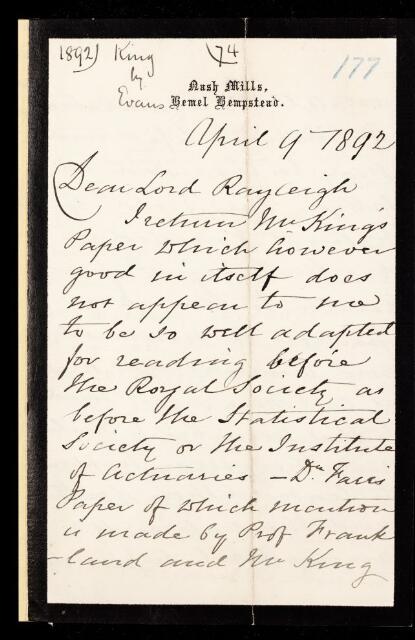 1892) King
by
Evans
(74
177
Nash Mills,
Hemel Hempstead.
April 9 1892
Dear Lord Rayleigh
I return Mr King's
Paper which however
good in itself does
not appear to me
to be so well adapted
for reading before
the Royal Society as
before the Statistical
Society or the Institute
of Actuaries – Dr. Farr's
Paper of which mention
is made by Prof Frank
-land and Mr King